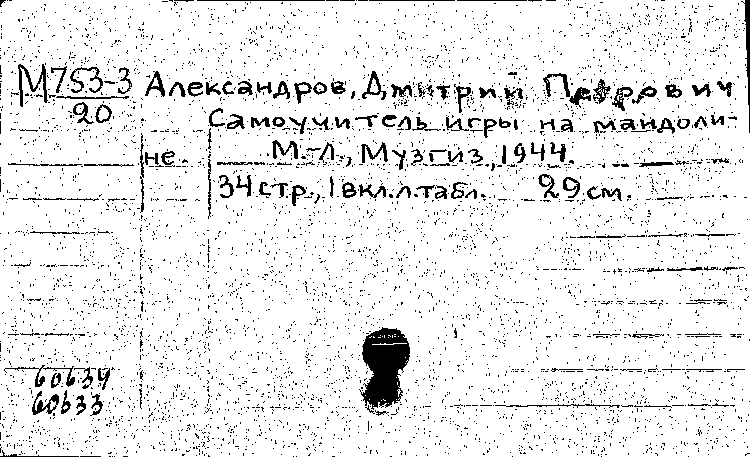 М753-3 Александров, Дмитрий Петрович
20
Самоучитель игры на мандоли-
не. М.-Л., Музгиз, 1944.
34 стр., 1 вкл.л.табл. 29 см.
60634
60633